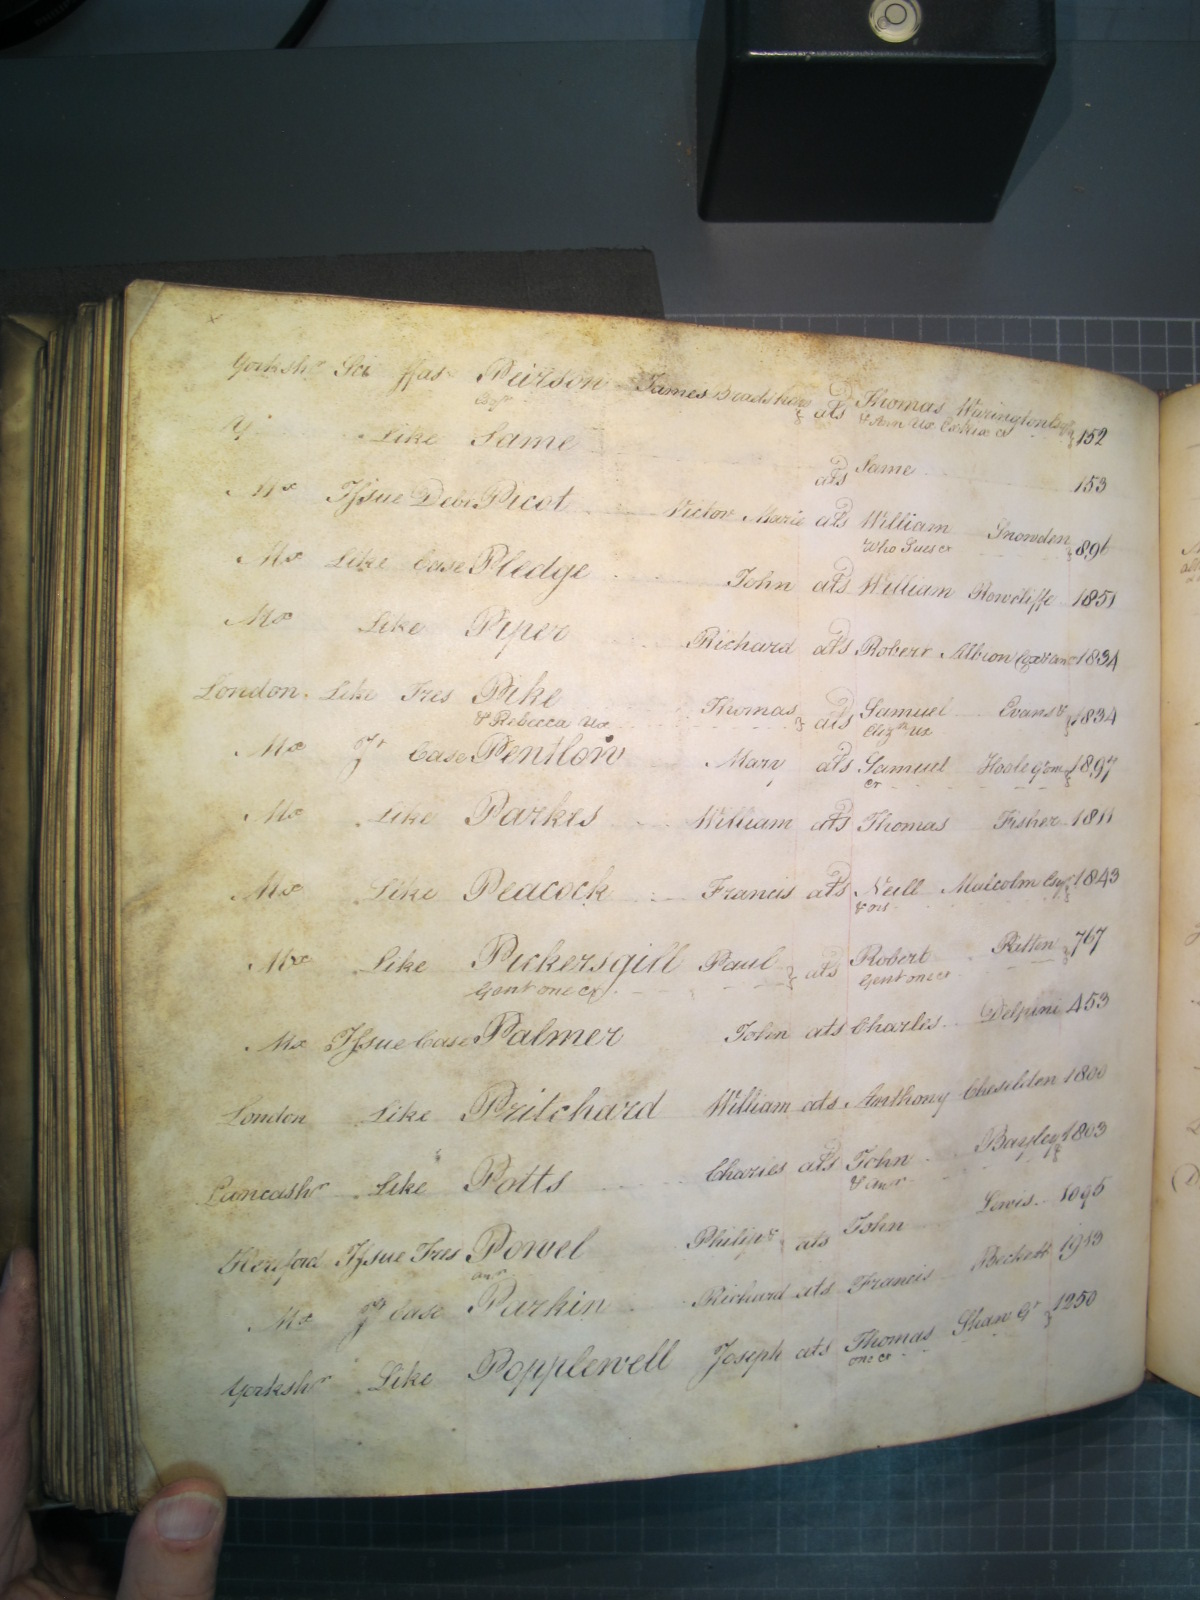 Yorkshr Sci ffas Peirson James Bradshaw ats Thomas Wivrington Esqr 152
Esqr & Ann Ux Exutrix cr
Yr Like Same ats Same 153
Mx Issue Debt Picot Victor Marie ats William Snowden 896
Who Sues cr
Mx Like Case Pledge John ats William Rowcliffe 1851
Mx Like Piper Richard ats Robert Albion 1834
London Like Tres Pike Thomas ats Samuel Evans & 1834
& Rebecca Ux Elizth Ux
Mx Jt Case Pentlow Mary ats Samuel Hoole Gent 1897
cr
Mx Like Parkes William ats Thomas Fisher 1811
Mx Like Peacock Francis ats Neill Malcolm Esqr 1843
& ors
Mx Like Pickersgill Paul ats Robert Kitten 767
Gent one cr Gent one cr
Mx Issue Case Palmer John ats Charles Delpini 453
London Like Pritchard William ats Anthony Cheselden 1800
Lancashr Like Potts Charles ats John Bayley & 1803
& anr
Hereford Issue Tres Powel Philip & ats John Lewis 1095
anr
Mx Jt Case Parkin Richard ats Francis Beckett 1913
Yorkshr Like Popplewell Joseph ats Thomas Shaw Gt 1250
one cr